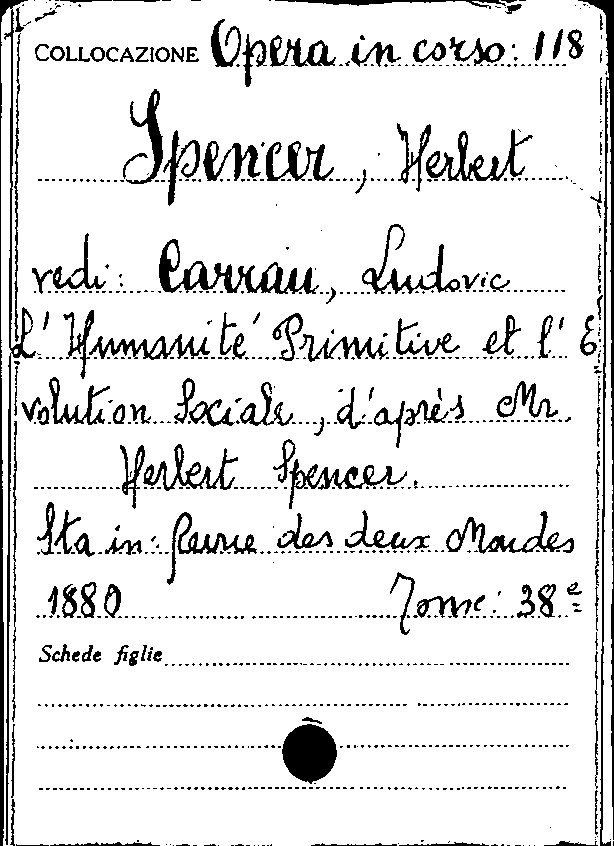 COLLOCAZIONE Opera in corso: 118
Spencer, Herbert
vedi: Carrau, Ludovic
L'Humanité Primitive et l'E
volution Sociale, d'après Mr.
Herbert Spencer.
Sta in: Revue des deux Mondes
1880 Tome: 38e
Schede figlie